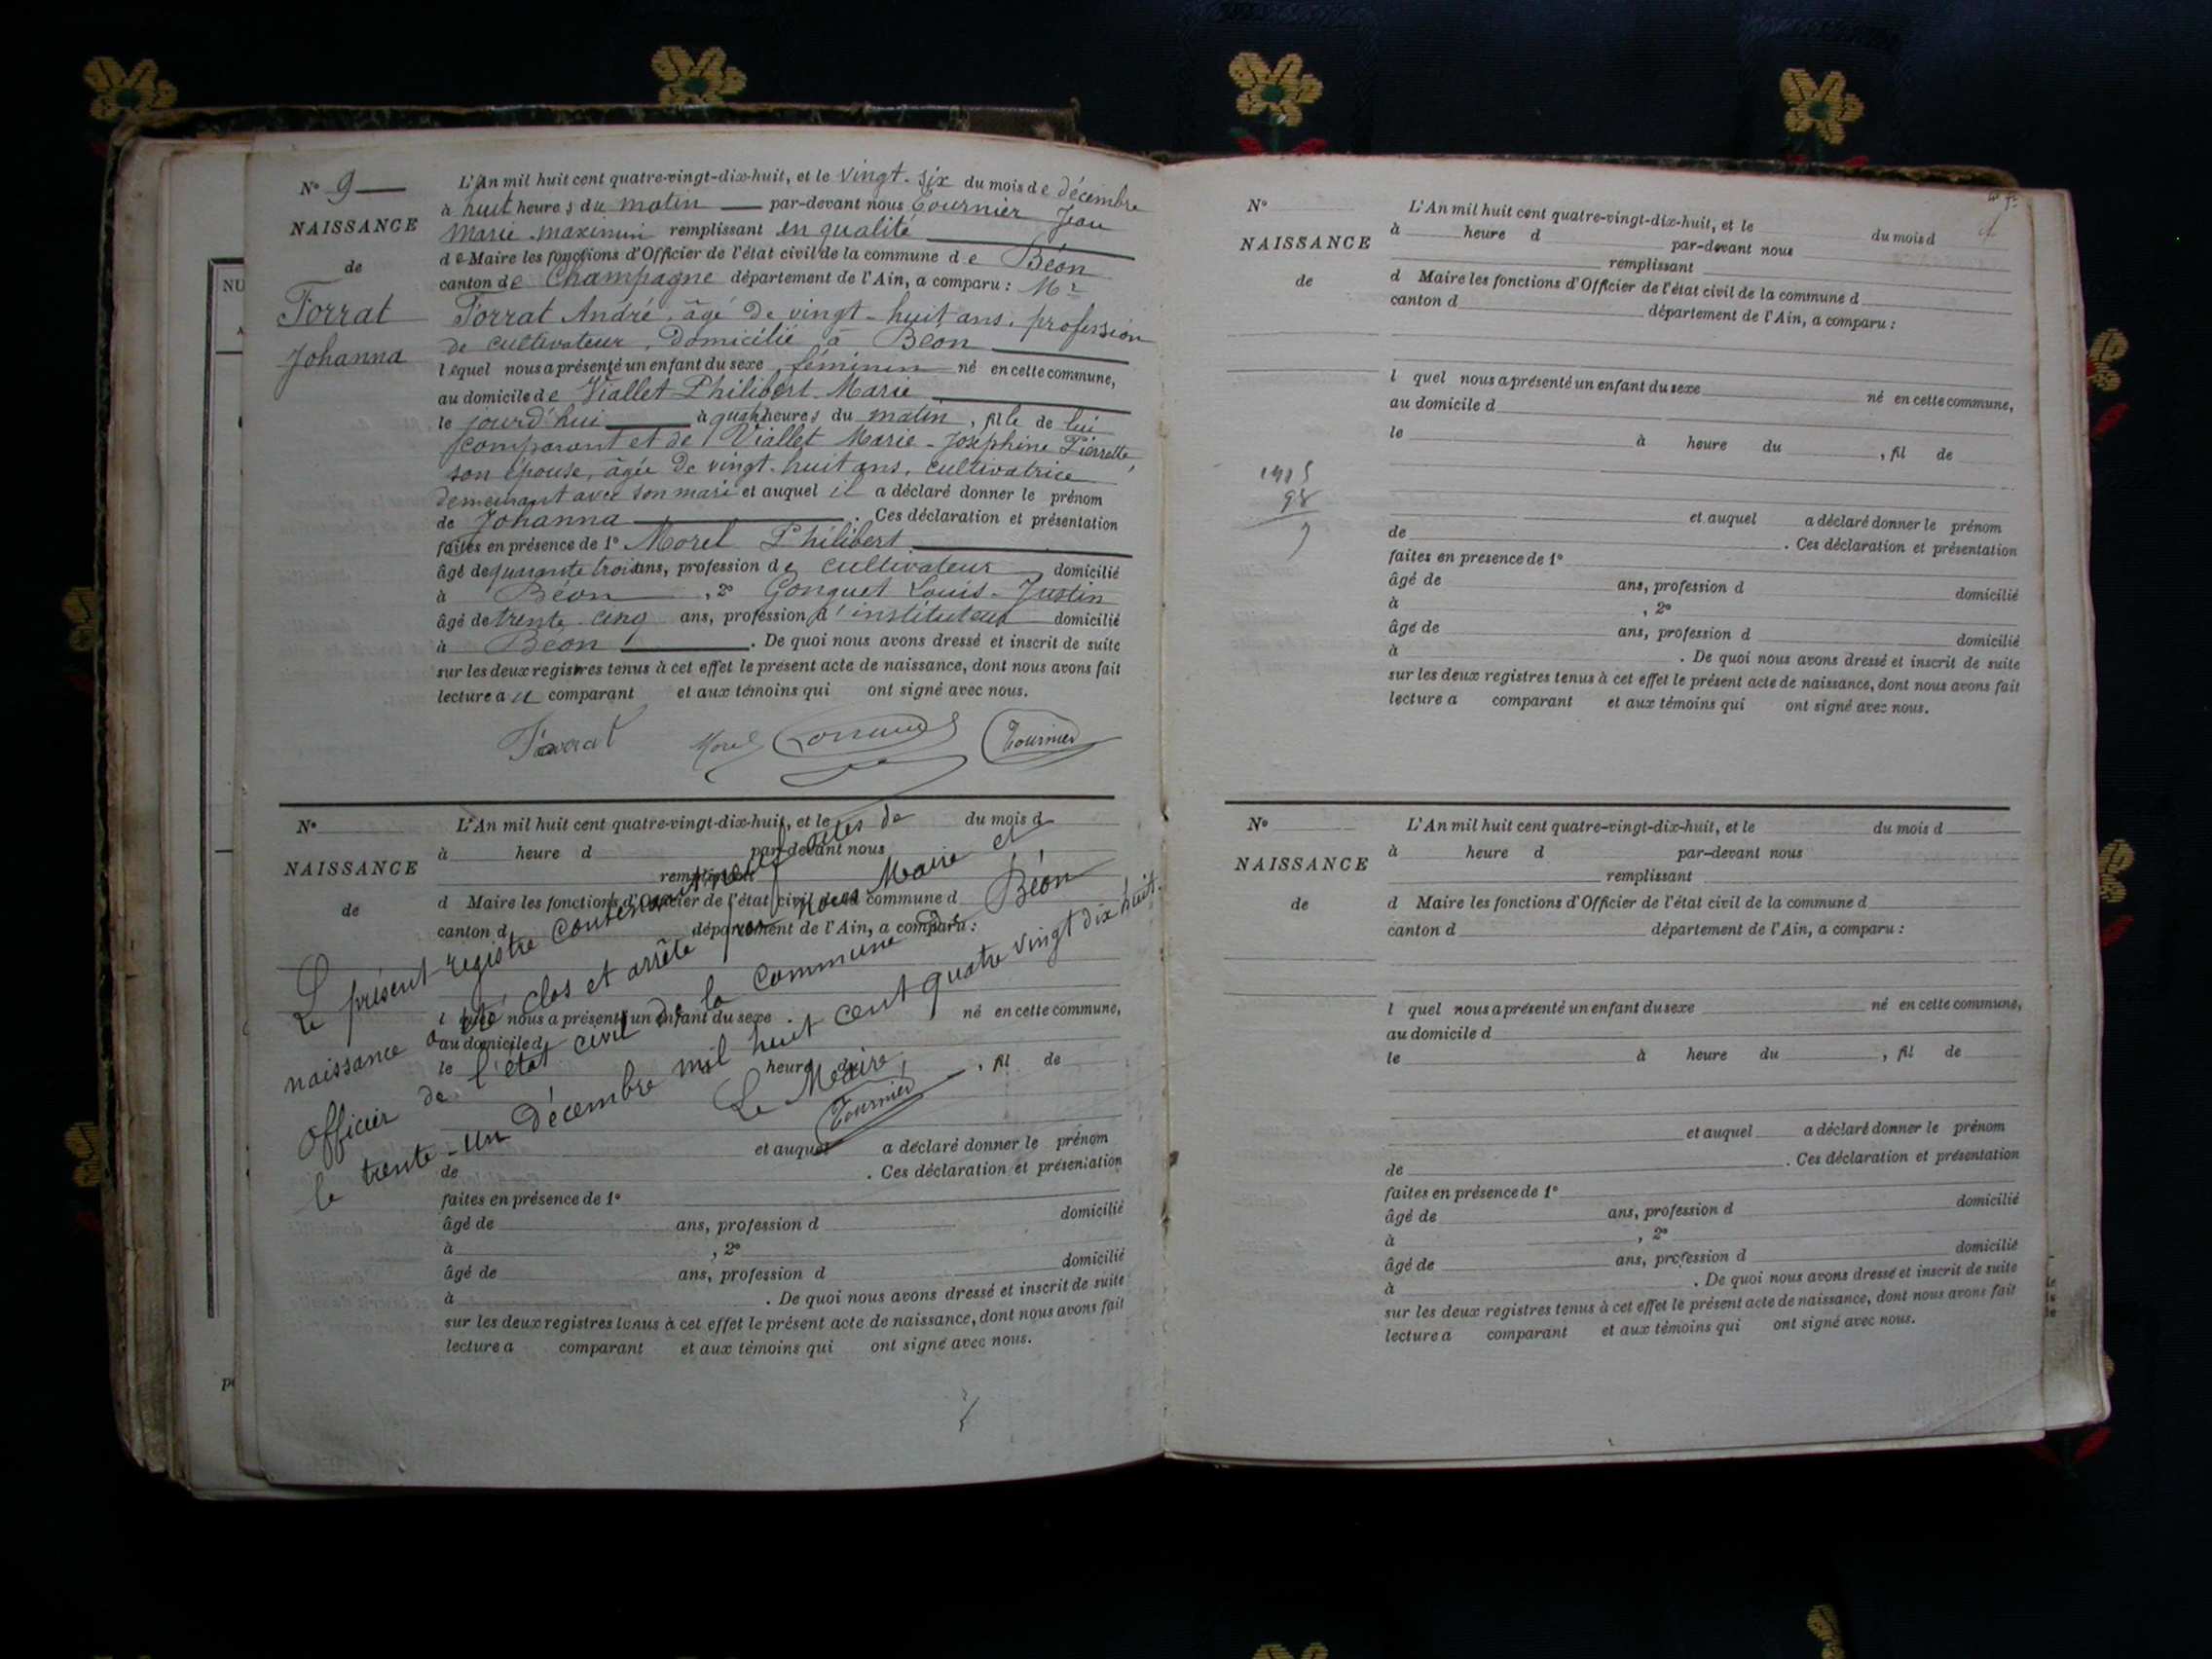 N° 9
NAISSANCE
de
Forrat
Johanna
L'An mil huit cent quatre-vingt-dix-huit, et le vingt-six du mois de décembre
à huit heures du matin par-devant nous Tournier Jean
Marie-maximin remplissant en qualité
de Maire les fonctions d'Officier de l'état civil de la commune de Béon
canton de Champagne département de l'Ain, a comparu : Mr
Forrat André, âgé de vingt-huit ans, profession
de cultivateur, domicilié à Béon
lequel nous a présenté un enfant du sexe féminin né en cette commune,
au domicile de Viallet Philibert-Marie
le jourd'hui à quatre heures du matin, fille de lui
comparant et de Viallet Marie-Joséphine Pierrette,
son épouse, âgée de vingt-huit ans, cultivatrice
demeurant avec son mari et auquel il a déclaré donner le prénom
de Johanna . Ces déclaration et présentation
faites en présence de 1° Morel Philibert
âgé de quarante trois ans, profession de cultivateur domicilié
à Béon , 2° Gonguet Louis-Justin
âgé de trente-cinq ans, profession d'instituteur domicilié
à Béon . De quoi nous avons dressé et inscrit de suite
sur les deux registres tenus à cet effet le présent acte de naissance, dont nous avons fait
lecture au comparant et aux témoins qui ont signé avec nous.
Morel Tournier
N°
NAISSANCE
de
L'An mil huit cent quatre-vingt-dix-huit, et le du mois d
à heure d par-devant nous
remplissant
d Maire les fonctions d'Officier de l'état civil de la commune d
canton d département de l'Ain, a comparu :
l quel nous a présenté un enfant du sexe né en cette commune,
au domicile d
le heure du , fil de
et auquel a déclaré donner le prénom
de . Ces déclaration et présentation
faites en présence de 1°
âgé de ans, profession d domicilié
à , 2°
âgé de ans, profession d domicilié
à . De quoi nous avons dressé et inscrit de suite
sur les deux registres tenus à cet effet le présent acte de naissance, dont nous avons fait
lecture a comparant et aux témoins qui ont signé avec nous.
Le présent registre contenant neuf actes de
naissance a été clos et arrêté par nous Maire et
Officier de l'état civil de la commune de Béon
le trente-un décembre mil huit cent quatre vingt dix huit.
Le Maire,
Tournier
N°
NAISSANCE
de
L'An mil huit cent quatre-vingt-dix-huit, et le du mois d
à heure d par-devant nous
remplissant
d Maire les fonctions d'Officier de l'état civil de la commune d
canton d département de l'Ain, a comparu :
l quel nous a présenté un enfant du sexe né en cette commune,
au domicile d
le à heure du , fil de
98
7
et auquel a déclaré donner le prénom
de . Ces déclaration et présentation
faites en présence de 1°
âgé de ans, profession d domicilié
à , 2°
âgé de ans, profession d domicilié
à . De quoi nous avons dressé et inscrit de suite
sur les deux registres tenus à cet effet le présent acte de naissance, dont nous avons fait
lecture a comparant et aux témoins qui ont signé avec nous.
N°
NAISSANCE
de
L'An mil huit cent quatre-vingt-dix-huit, et le du mois d
à heure d par-devant nous
remplissant
d Maire les fonctions d'Officier de l'état civil de la commune d
canton d département de l'Ain, a comparu :
l quel nous a présenté un enfant du sexe né en cette commune,
au domicile d
le à heure du , fil de
et auquel a déclaré donner le prénom
de . Ces déclaration et présentation
faites en présence de 1°
âgé de ans, profession d domicilié
à , 2°
âgé de ans, profession d domicilié
à . De quoi nous avons dressé et inscrit de suite
sur les deux registres tenus à cet effet le présent acte de naissance, dont nous avons fait
lecture a comparant et aux témoins qui ont signé avec nous.